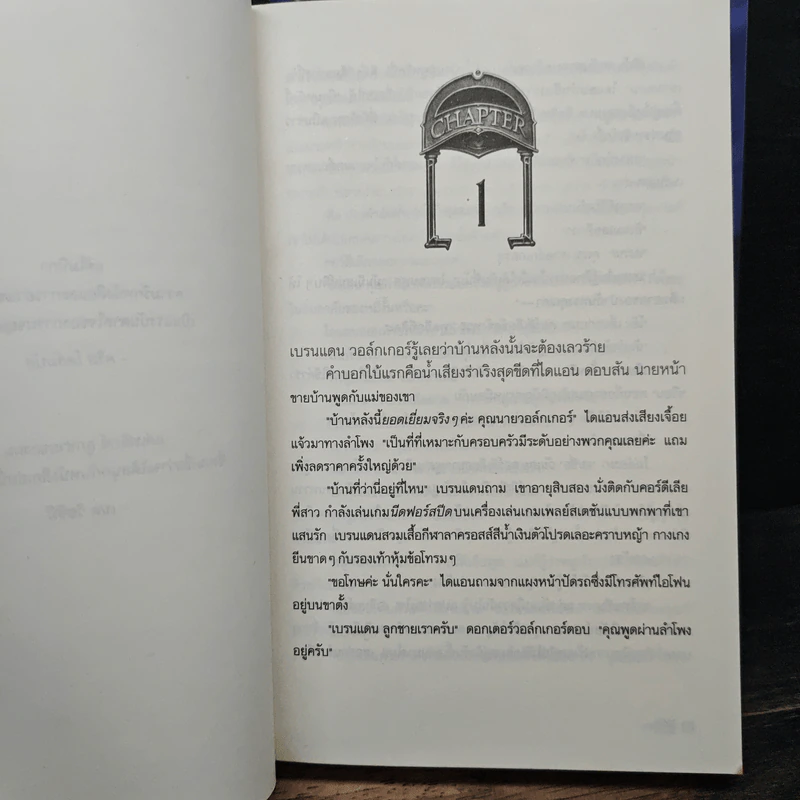 CHAPTER
1
เบรนแดน วอล์กเกอร์รู้เลยว่าบ้านหลังนั้นจะต้องเลวร้าย
คำบอกใบ้แรกคือน้ำเสียงร่าเริงสุดขีดที่ไดแอน ดอบสัน นายหน้า
ขายบ้านพูดกับแม่ของเขา
"บ้านหลังนี้ยอดเยี่ยมจริงๆ ค่ะ คุณนายวอล์กเกอร์" ไดแอนส่งเสียงเจื้อย
แจ้วมาทางลำโพง "เป็นที่ที่เหมาะกับครอบครัวมีระดับอย่างพวกคุณเลยค่ะ แถม
เพิ่งลดราคาครั้งใหญ่ด้วย"
"บ้านที่ว่านี่อยู่ที่ไหน" เบรนแดนถาม เขาอายุสิบสอง นั่งติดกับคอร์ดีเลีย
พี่สาว กำลังเล่นเกมนีดฟอร์สปีดบนเครื่องเล่นเกมเพลย์สเตชันแบบพกพาที่เขา
แสนรัก เบรนแดนสวมเสื้อกีฬาลาครอสส์สีน้ำเงินตัวโปรดเลอะคราบหญ้า กางเกง
ยีนขาดๆ กับรองเท้าหุ้มข้อโทรมๆ
"ขอโทษค่ะ นั่นใครคะ" ไดแอนถามจากแผงหน้าปัดรถซึ่งมีโทรศัพท์ไอโฟน
อยู่บนขาตั้ง
"เบรนแดน ลูกชายเราครับ" ดอกเตอร์วอล์กเกอร์ตอบ "คุณพูดผ่านลำโพง
อยู่ครับ"